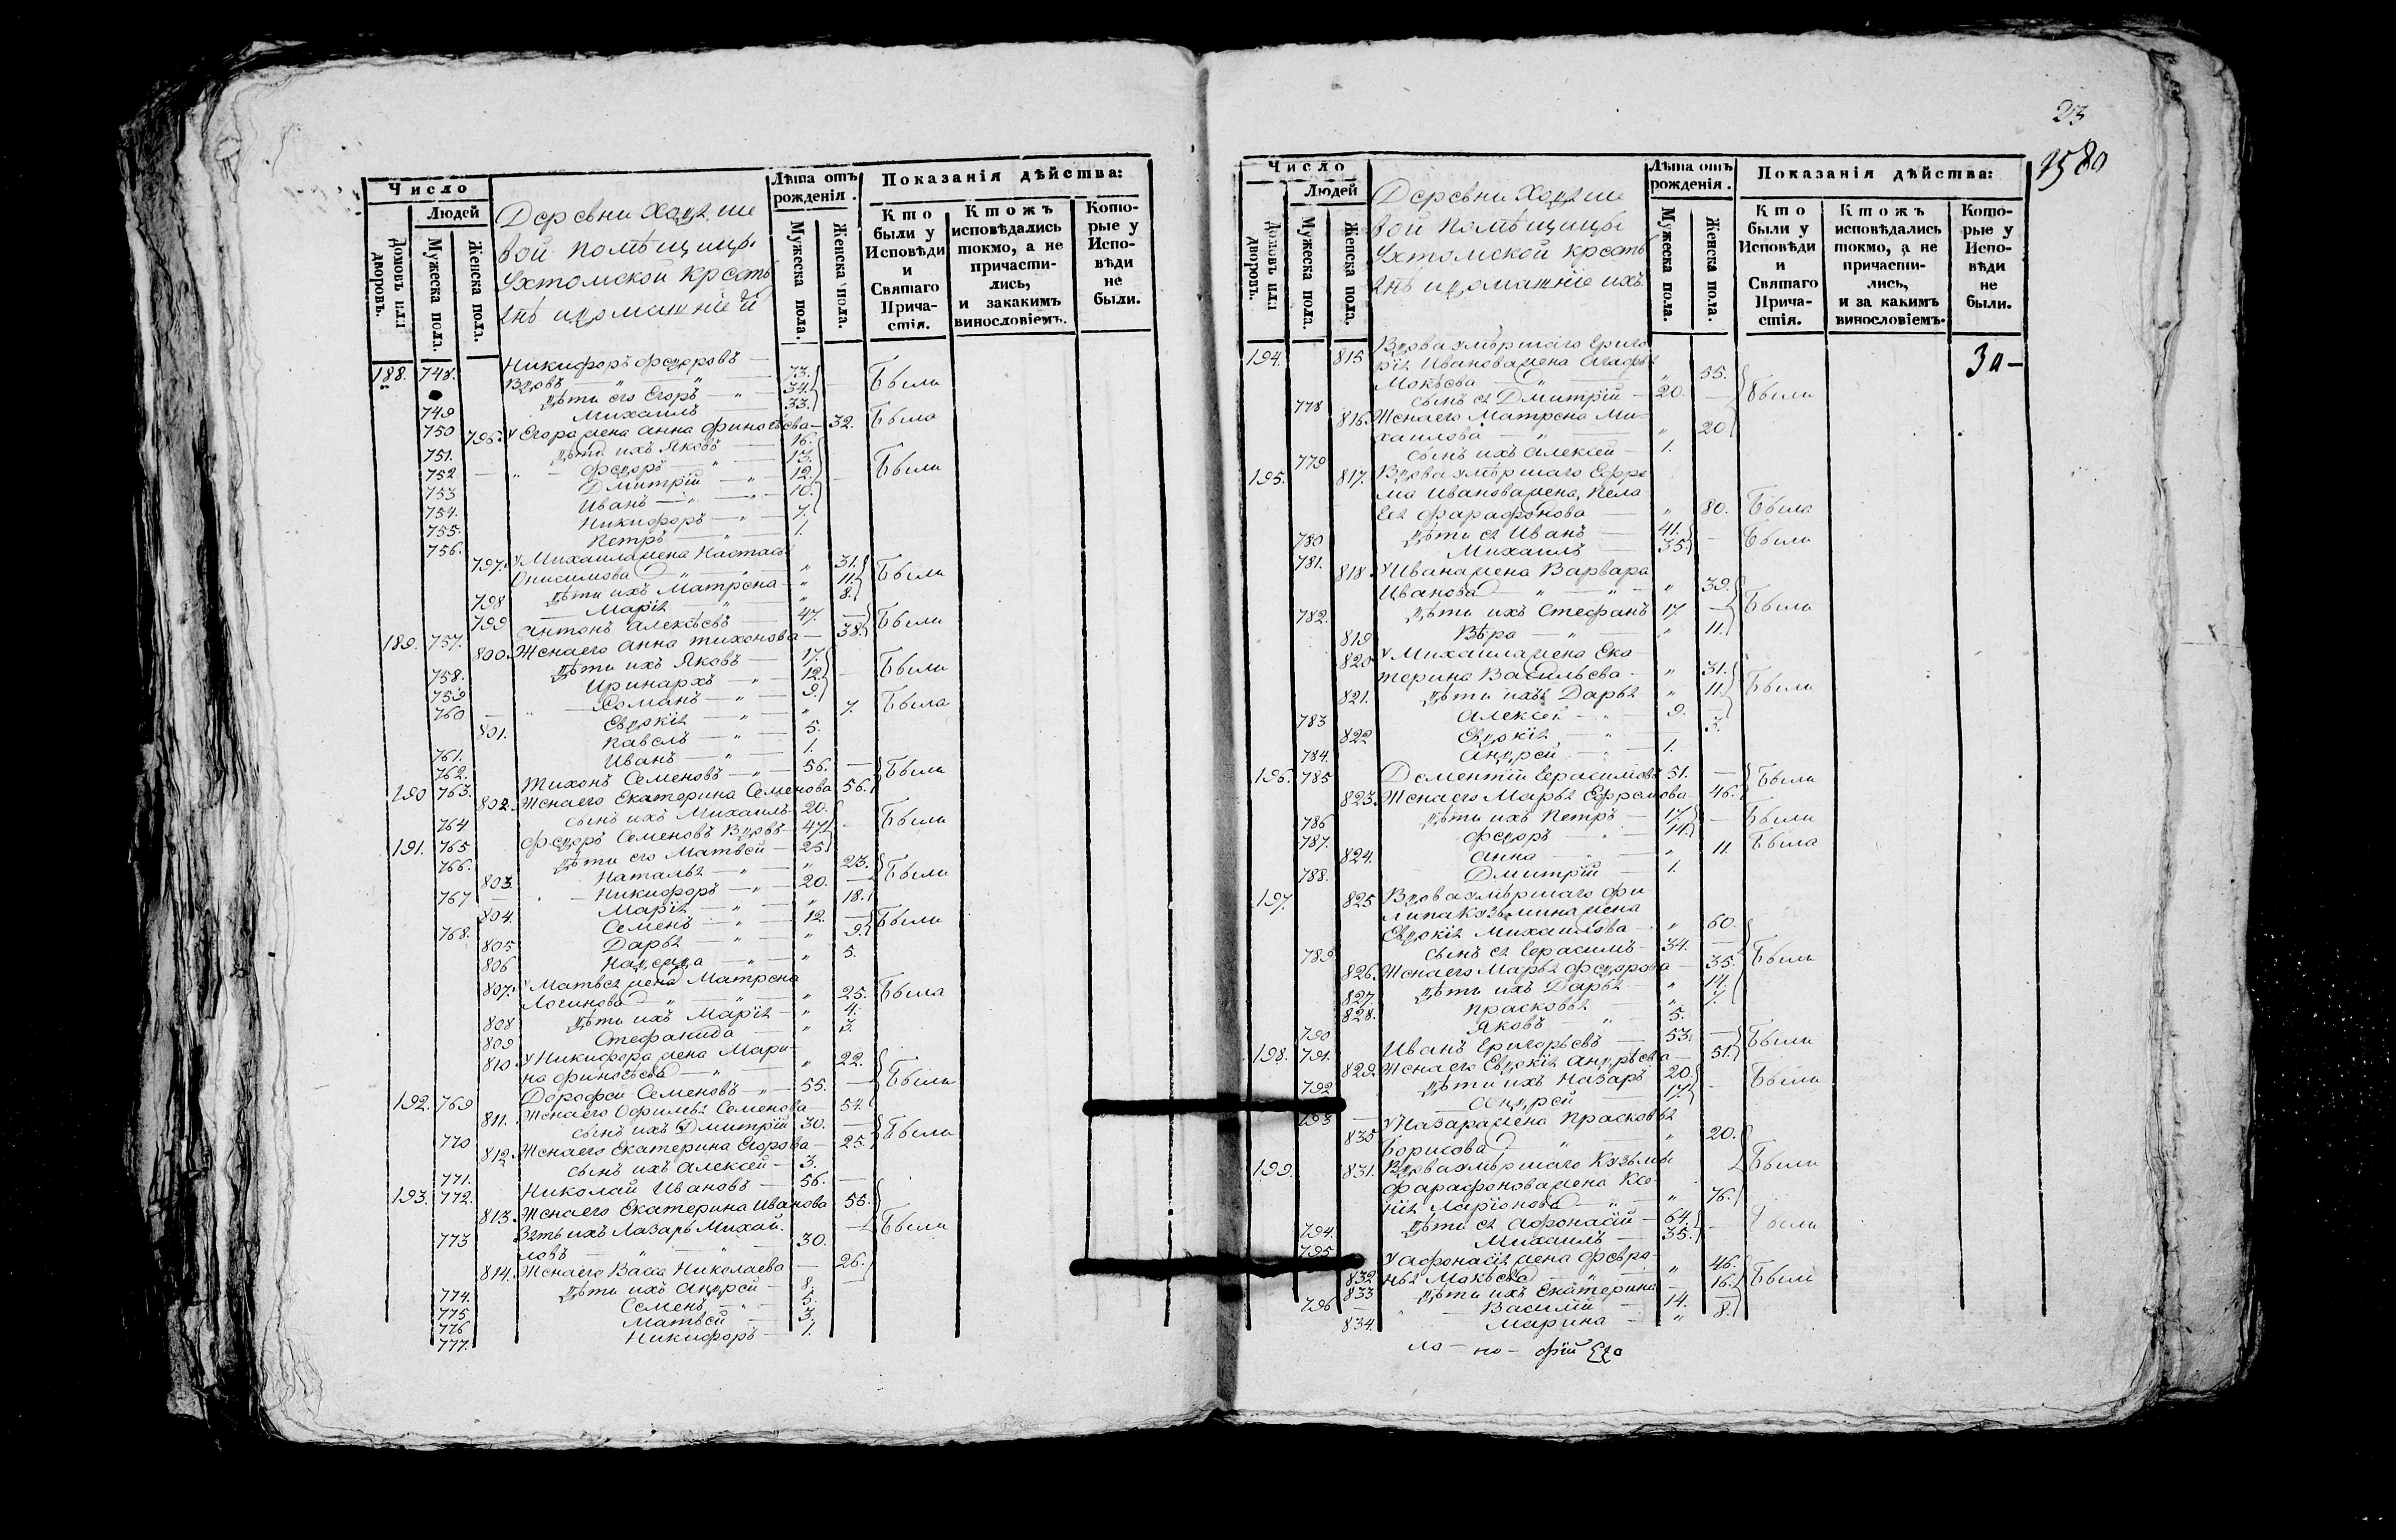 Число
Людей
Домовъ или дворовъ.
Мужеска пола.
Женска пола.
Деревни Ходяше
вой помѣщицы
Ухтомской крестья
нѣ и домашніе и
Лѣта отъ рожденія.
Мужеска пола.
Женска пола.
Показанія дѣйства:
Кто были у Исповѣди и Святаго Причастія.
Ктожъ исповѣдались токмо, а не причастились, и закакимъ винословіемъ.
Которые у Исповѣди не были.
188. 748. Никифоръ Федоровъ —
Вдовъ — " — " — 73. Были
749 дѣти его Егоръ — " — 34.
750 Михаилъ — 33.
796. У Егора жена Анна Финогѣева — 32. Была
751. дѣти ихъ Яковъ — 16.
752 — " — Федоръ — " — 13. Были
753 Дмитрій — " — 12.
754. Иванъ — " — " — 10.
755. Никифоръ — " — 7.
756. Петръ — " — 1.
797. У Михаила жена Настасья
Онисимова — " — " 31. Были
798 дѣти ихъ Матрена — " 11.
799 Марія — " — " 8.
189. 757. Антонъ Алексѣевъ — 47. — Были
800. Жена его Анна Тихонова — 38.
758. дѣти ихъ Яковъ — 17.
759 Иринархъ — " — 12. Были
760 — " — Романъ — " — 9.
801. Евдокія — " — " 7. Была
761. Павелъ — " — 5.
762. Иванъ — " — 1.
190 763. Тихонъ Семеновъ — " — 56. — Были
802. Жена его Екатерина Семенова 56.
764 сынъ ихъ Михаилъ 20.
191. 765 Федоръ Семеновъ Вдовъ — 47. Были
766. дѣти его Матвей — 25.
803. Наталья — " — " 23. Были
767 — Никифоръ — " — 20. —
804. Марія — " — " 18.
768. Семенъ — " — 12. — Были
805 Дарья — " — " 9.
806 Надежда — " — " 5.
807. У Матвея жена Матрена
Логинова — " — " — " 25. Была
808 дѣти ихъ Марія — " 4.
809 Стефанида — " 3.
810 У Никифора жена Мари
на Финогѣева — " — " 22.
192. 769 Дорофей Семеновъ — " — 55. — Были
811. Жена его Офимья Семенова — 54.
770 сынъ ихъ Дмитрій 30. —
812. Жена его Екатерина Егорова — 25. Были
771. сынъ ихъ Алексей — 3.
193. 772. Николай Ивановъ — 56. —
813. Жена его Екатерина Иванова 55.
773 Зять ихъ Лазарь Михай
ловъ — " — " — 30. — Были
814. Жена его Васса Николаева — 26.
774. дѣти ихъ Андрей — 8. —
775 Семенъ — " — 5.
776 Матвей — 3.
777. Никифоръ — 1.
23
1580
Число
Людей
Домовъ или дворовъ.
Мужеска пола.
Женска пола.
Деревни Ходяше
вой помѣщицы
Ухтомской кресть
янѣ и домашніе ихъ
Лѣта отъ рожденія.
Мужеска пола.
Женска пола.
Показанія дѣйства:
Кто были у Исповѣди и Святаго Причастія.
Ктожъ исповѣдались токмо, а не причастились, и за какимъ винословіемъ.
Которые у Исповѣди не были.
За —
194. 815 Вдова умѣршаго Григо
рія Иванова жена Агафья
Мокѣева — " — " 55.
778 сынъ ея Дмитрій — 20. — Были
816. Жена его Матрена Ми
хаилова — " — " 20
779 сынъ ихъ Алексей — 1.
195. 817. Вдова умѣршаго Ефре
ма Иванова жена, Пела
гея Фарафонова — " 80. Была
780 дѣти ея Иванъ — 41. — Были
781. Михаилъ — 35.
818. У Ивана жена Варвара
Иванова — " — " — " 39.
782. дѣти ихъ Стефанъ 17. — Были
819 Вѣра — " — " 11.
820 У Михаила жена Ека
терина Васильева — " 31.
821. дѣти ихъ Дарья " 11. Были
783 Алексей — " — 9. —
822 Евдокія — " — 3.
784. Андрей — " — 1.
196. 785 Дементій Герасимовъ 51. — Были
823. Жена его Марья Ефремова 46.
786 дѣти ихъ Петръ — 17. — Были
787. Федоръ — " — 14.
824. Анна — " — " 11. Была
788. Дмитрій — 1.
197. 825 Вдова умѣршаго Фи
липа Кузьмина жена
Евдокія Михайлова — " 60.
789 сынъ ея Герасимъ — 34. — Были
826. Жена его Марья Федорова 35.
827. дѣти ихъ Дарья — " 14.
828. Прасковья " 7.
790 Яковъ — " — 5.
198. 791. Иванъ Григорьевъ — 53. — Были
829. Жена его Евдокія Андрѣева 51.
792 дѣти ихъ Назаръ 20. — Были
793 Андрей — 17.
835 У Назара жена Прасковья
Борисова — " — " 20.
199. 831. Вдова умѣршаго Кузьмы Были
Фарафонова жена Ксе
нія Ларіонова — " — " 76.
794. дѣти ея Афонасій — 64. — Были
795 Михаилъ — 35.
832. У Афонасія жена Февро
нья Мокѣева — " — " 46.
833 дѣти ихъ Екатерина — 16. Были
796 — " — Василій — 14. —
834. Марина — " 8.
ло — но — фій